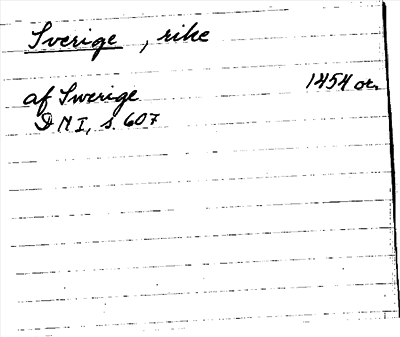 Sverige, rike
af Swerige 1454 or.
DN I, s. 607